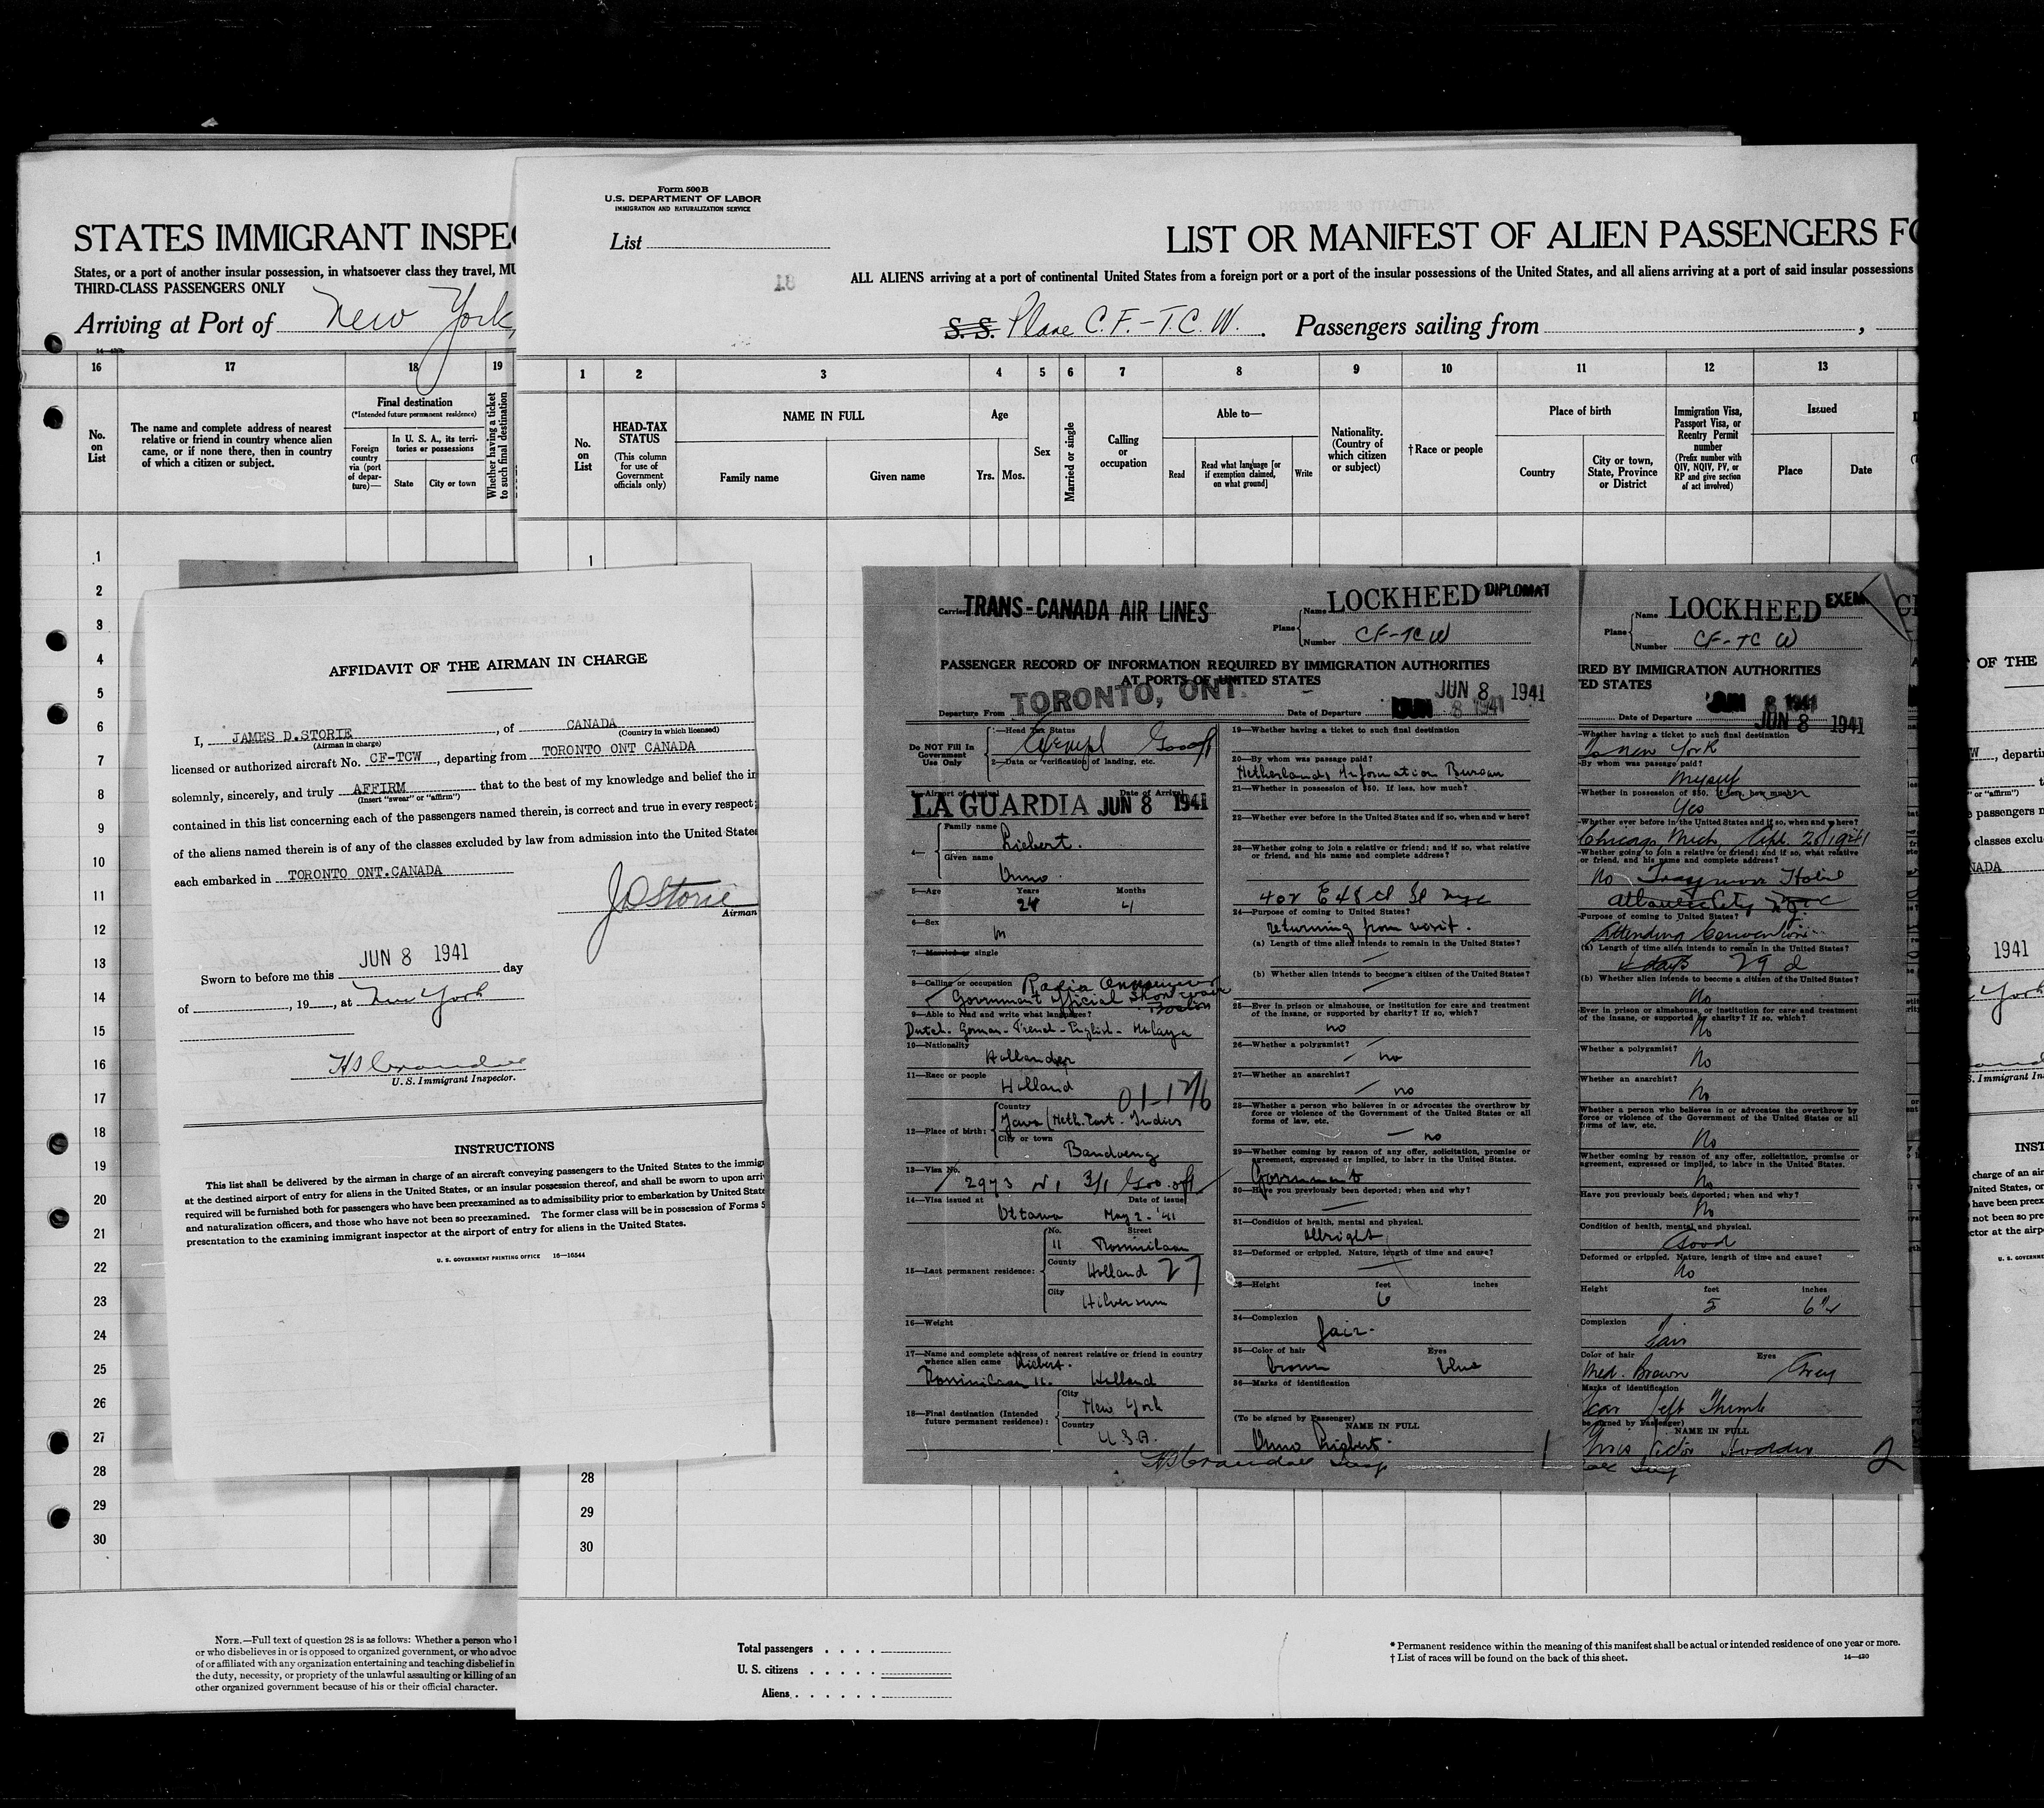 STATES IMMIGRANT INSPE
States, or a port of another insular possession, in whatsoever class they travel, MU
THIRD-CLASS PASSENGERS ONLY
Arriving at Port of New York,
16
17
18
19
No. on List
The name and complete address of nearest relative or friend in country whence alien came, or if none there, then in country of which a citizen or subject.
Final destination
(*Intended future permanent residence)
Foreign country via (port of departure)—
In U. S. A., its territories or possessions
State
City or town
Whether having a ticket to such final destination
1
2
3
4
5
6
7
8
9
10
11
12
13
14
15
16
17
18
19
20
21
22
23
24
25
26
27
28
29
30
NOTE.—Full text of question 28 is as follows: Whether a person who
or who disbelieves in or is opposed to organized government, or who advoc
of or affiliated with any organization entertaining and teaching disbelief in
the duty, necessity, or propriety of the unlawful assaulting or killing of an
other organized government because of his or their official character.
AFFIDAVIT OF THE AIRMAN IN CHARGE
I, JAMES D.STORIE, of CANADA
(Airman in charge)
(Country in which licensed)
licensed or authorized aircraft No. CF-TCW, departing from TORONTO ONT CANADA
solemnly, sincerely, and truly AFFIRM that to the best of my knowledge and belief the in
(Insert "swear" or "affirm")
contained in this list concerning each of the passengers named therein, is correct and true in every respect;
of the aliens named therein is of any of the classes excluded by law from admission into the United State
each embarked in TORONTO ONT.CANADA
JDStorie
Airman
Sworn to before me this JUN 8 1941 day
of , 19 , at New York
U. S. Immigrant Inspector.
INSTRUCTIONS
This list shall be delivered by the airman in charge of an aircraft conveying passengers to the United States to the immig
at the destined airport of entry for aliens in the United States, or an insular possession thereof, and shall be sworn to upon arri
required will be furnished both for passengers who have been preexamined as to admissibility prior to embarkation by United State
and naturalization officers, and those who have not been so preexamined. The former class will be in possession of Forms 5
presentation to the examining immigrant inspector at the airport of entry for aliens in the United States.
U. S. GOVERNMENT PRINTING OFFICE 16—16544
Form 500 B
U.S. DEPARTMENT OF LABOR
IMMIGRATION AND NATURALIZATION SERVICE
List
LIST OR MANIFEST OF ALIEN PASSENGERS FO
ALL ALIENS arriving at a port of continental United States from a foreign port or a port of the insular possessions of the United States, and all aliens arriving at a port of said insular possessions
S. S. Plane C.F.-T.C.W. Passengers sailing from ,
1
2
3
4
5
6
7
8
9
10
11
12
13
No. on List
HEAD-TAX STATUS
(This column for use of Government officials only)
NAME IN FULL
Family name
Given name
Age
Yrs.
Mos.
Sex
Married or single
Calling or occupation
Able to—
Read
Read what language [or if exemption claimed, on what ground]
Write
Nationality. (Country of which citizen or subject)
†Race or people
Place of birth
Country
City or town, State, Province or District
Immigration Visa, Passport Visa, or Reentry Permit number
(Prefix number with QIV, NQIV, PV, or RP and give section of act involved)
Issued
Place
Date
1
28
29
30
Total passengers
U. S. citizens
Aliens
* Permanent residence within the meaning of this manifest shall be actual or intended residence of one year or more.
† List of races will be found on the back of this sheet.
14—420
Carrier TRANS-CANADA AIR LINES
Plane Name LOCKHEED DIPLOMAT
Number CF-TCW
PASSENGER RECORD OF INFORMATION REQUIRED BY IMMIGRATION AUTHORITIES
AT PORTS OF UNITED STATES
Departure From TORONTO, ONT. Date of Departure JUN 8 1941
JUN 8 1941
Do NOT Fill In Government Use Only
1—Head Tax Status
Exempt Gov off
2—Data or verification of landing, etc.
3—Airport of Arrival Date of Arrival
LA GUARDIA JUN 8 1941
4— Family name Liebert.
Given name Onno.
5—Age Years 24 Months 4
6—Sex m
7—Married or single
8—Calling or occupation Radio Announcer
Government official Short wave
Boston
9—Able to read and write what languages?
Dutch-German-French-English-Malaya
10—Nationality Hollander
11—Race or people Holland
12—Place of birth: Country Java (Neth. East-Indies
City or town Bandoeng
13—Visa No. 2973 3/1 Gov. off
14—Visa issued at Date of issue
Ottawa May 2-'41
15—Last permanent residence: No. 11 Street Rossinilaan
County Holland 27
City Hilversum
16—Weight
17—Name and complete address of nearest relative or friend in country whence alien came Liebert.
Rossinilaan 11. Holland
18—Final destination (Intended future permanent residence): City New York
Country U.S.A.
19—Whether having a ticket to such final destination
20—By whom was passage paid?
Netherlands Information Bureau
21—Whether in possession of $50. If less, how much?
22—Whether ever before in the United States and if so, when and where?
23—Whether going to join a relative or friend; and if so, what relative or friend, and his name and complete address?
402 E 48 St nyc
24—Purpose of coming to United States?
returning from visit.
(a) Length of time alien intends to remain in the United States?
(b) Whether alien intends to become a citizen of the United States?
25—Ever in prison or almshouse, or institution for care and treatment of the insane, or supported by charity? If so, which?
no
26—Whether a polygamist?
no
27—Whether an anarchist?
no
28—Whether a person who believes in or advocates the overthrow by force or violence of the Government of the United States or all forms of law, etc.
no
29—Whether coming by reason of any offer, solicitation, promise or agreement, expressed or implied, to labor in the United States.
Government
30—Have you previously been deported; when and why?
31—Condition of health, mental and physical.
allright
32—Deformed or crippled. Nature, length of time and cause?
33—Height feet 6 inches
34—Complexion fair.
35—Color of hair brown Eyes blue
36—Marks of identification
(To be signed by Passenger)
NAME IN FULL
Onno Liebert.
1
Plane Name LOCKHEED EXEM
Number CF-TCW
IRED BY IMMIGRATION AUTHORITIES
ED STATES
Date of Departure JUN 8 1941
JUN 8 1941
Whether having a ticket to such final destination
To New York
By whom was passage paid?
Myself
Whether in possession of $50. If less, how much?
Yes
Whether ever before in the United States and if so, when and where?
Whether going to join a relative or friend; and if so, what relative or friend, and his name and complete address?
No Traymore Hotel
Atlantic City
Purpose of coming to United States?
Attending Convention
(a) Length of time alien intends to remain in the United States?
days 29 d
(b) Whether alien intends to become a citizen of the United States?
No
Ever in prison or almshouse, or institution for care and treatment of the insane, or supported by charity? If so, which?
No
Whether a polygamist?
No
Whether an anarchist?
No
Whether a person who believes in or advocates the overthrow by force or violence of the Government of the United States or all forms of law, etc.
No
Whether coming by reason of any offer, solicitation, promise or agreement, expressed or implied, to labor in the United States.
No
Have you previously been deported; when and why?
No
Condition of health, mental and physical.
Good
Deformed or crippled. Nature, length of time and cause?
No
Height feet 5 inches 6½
Complexion Fair
Color of hair Med. Brown Eyes Grey
Marks of identification
Scar left Thumb
be signed by Passenger)
NAME IN FULL
Victor Hodder
2
OF THE
, departin
" or "affirm")
passengers n
classes exclu
NADA
1941
York
S. Immigrant In
INST
charge of an air